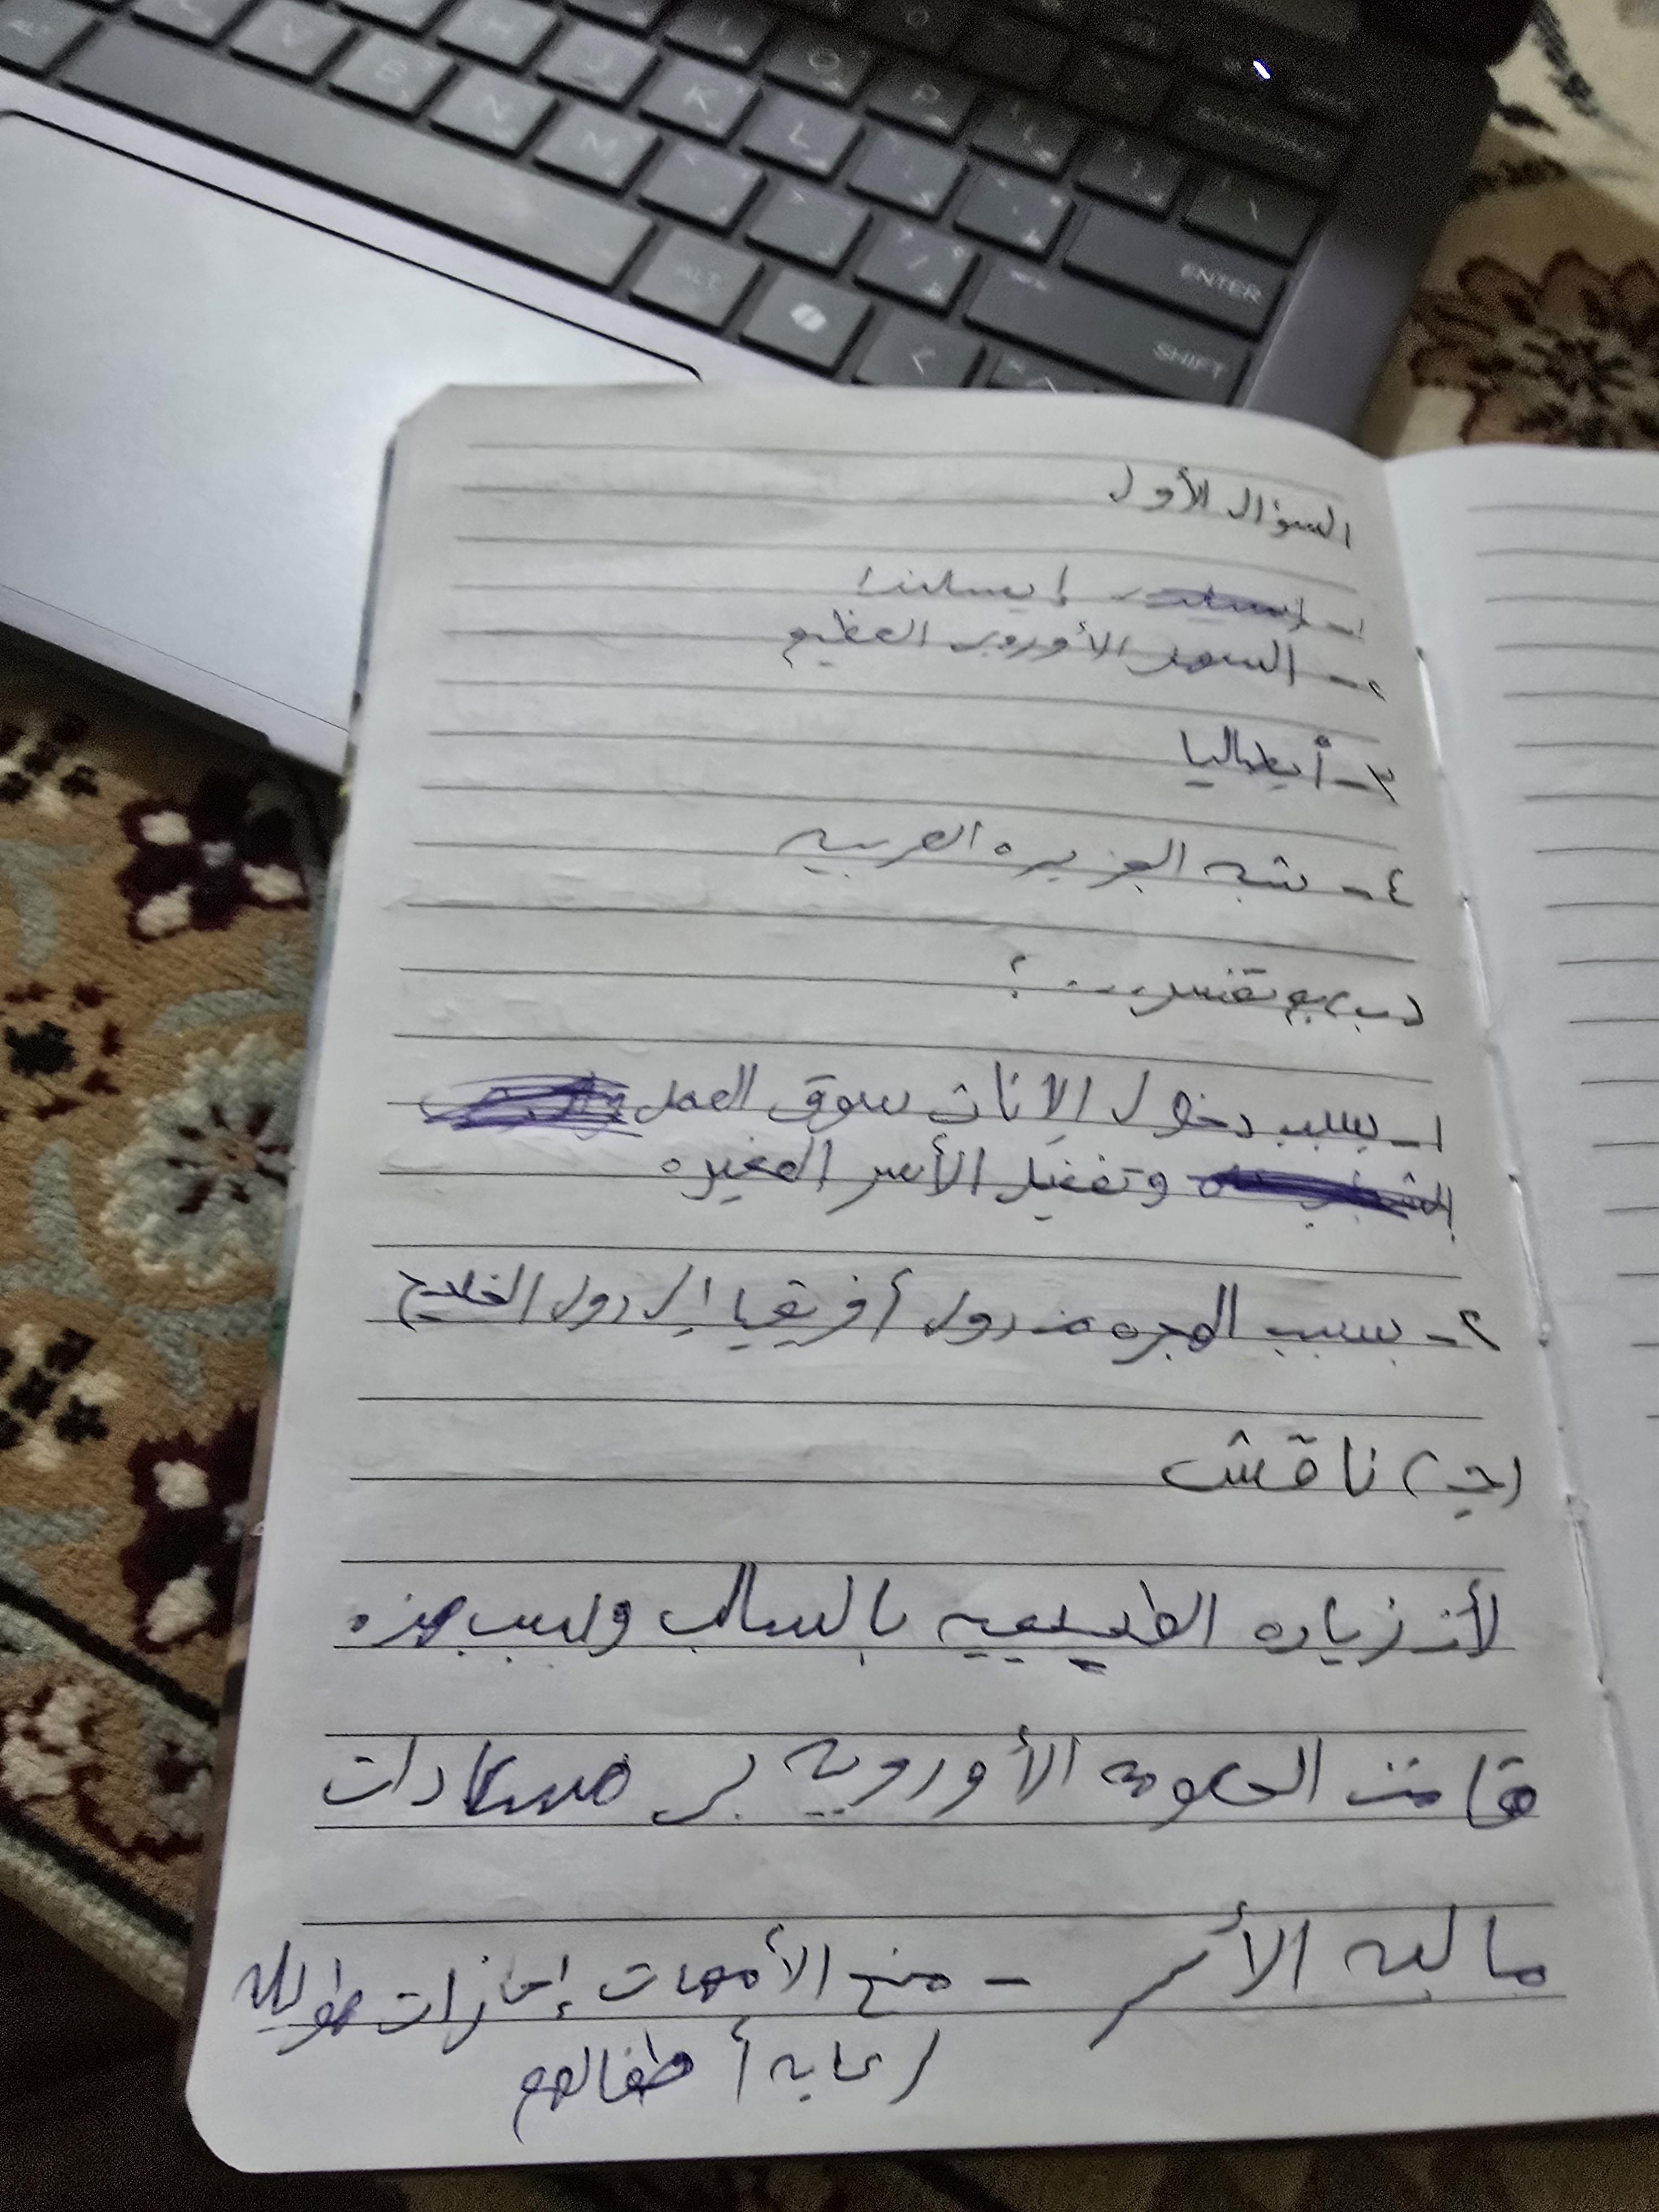 O
P
H
J
K
L
V
B
N
M
BACKSPACE
ENTER
SHIFT
ALT
السؤال الأول
١- إيسلندا
٢- السهل الأوروبي العظيم
٣- أيطاليا
٤- شبه الجزيره العربيه
(ب) بم تفسر .... ؟
١- بسبب دخول الإناث سوق العمل
وتفضيل الأسر الصغيره
٢- بسبب الهجره من دول أفريقيا إلى دول الخليج
(جـ) ناقش
لأن زياده الطبيعيه بالسالب ولسبب هزه
قامت الحكومه الأوروبيه بـ مساعدات
ماليه الأسر - منح الأمهات إجازات طويله
لرعايه أطفالهم